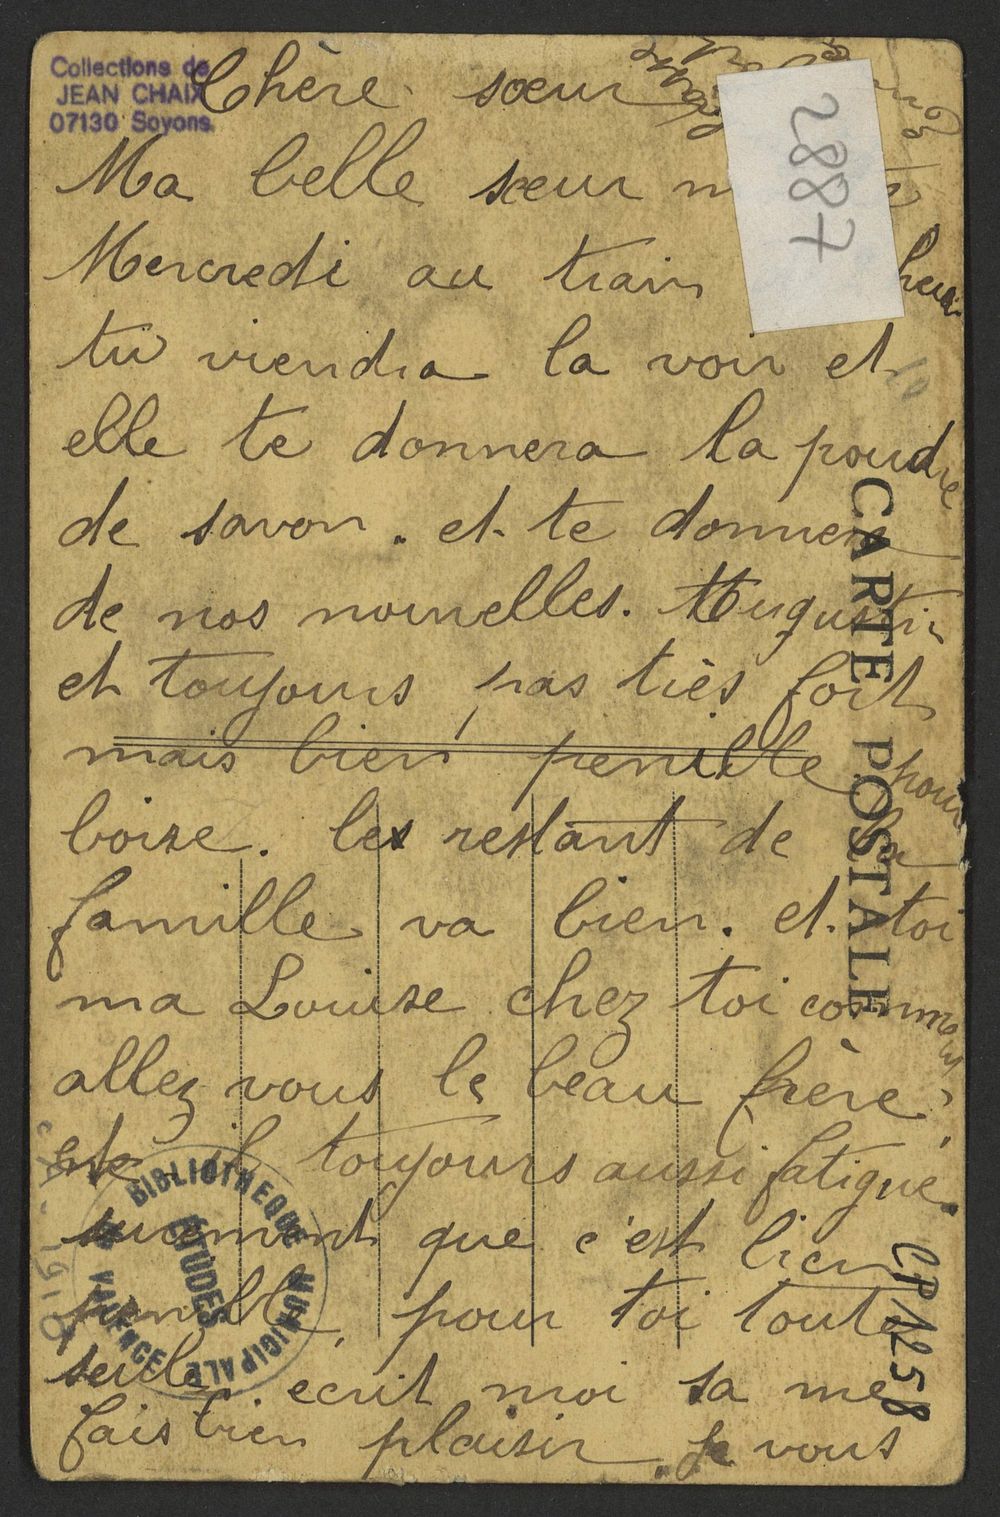 Collections de
JEAN CHAIX
07130 Soyons
2887
Chère sœur
Ma belle sœur
Mercredi au train
tu viendra la voir et
elle te donnera la poudre
de savon. et te donnera
de nos nouvelles. Augustin
et toujours pas très fort
mais bien penible pour
boire. les restant de la
famille va bien. et toi
ma Louise chez toi comment
allez vous le beau frère
este il toujours aussi fatigue.
surement que c'est bien
penible pour toi toute
seule ecrit moi sa me
fais bien plaisir. Je vous
CARTE POSTALE
CPN258
BIBLIOTHEQUE MUNICIPALE
ETUDES
VALENCE